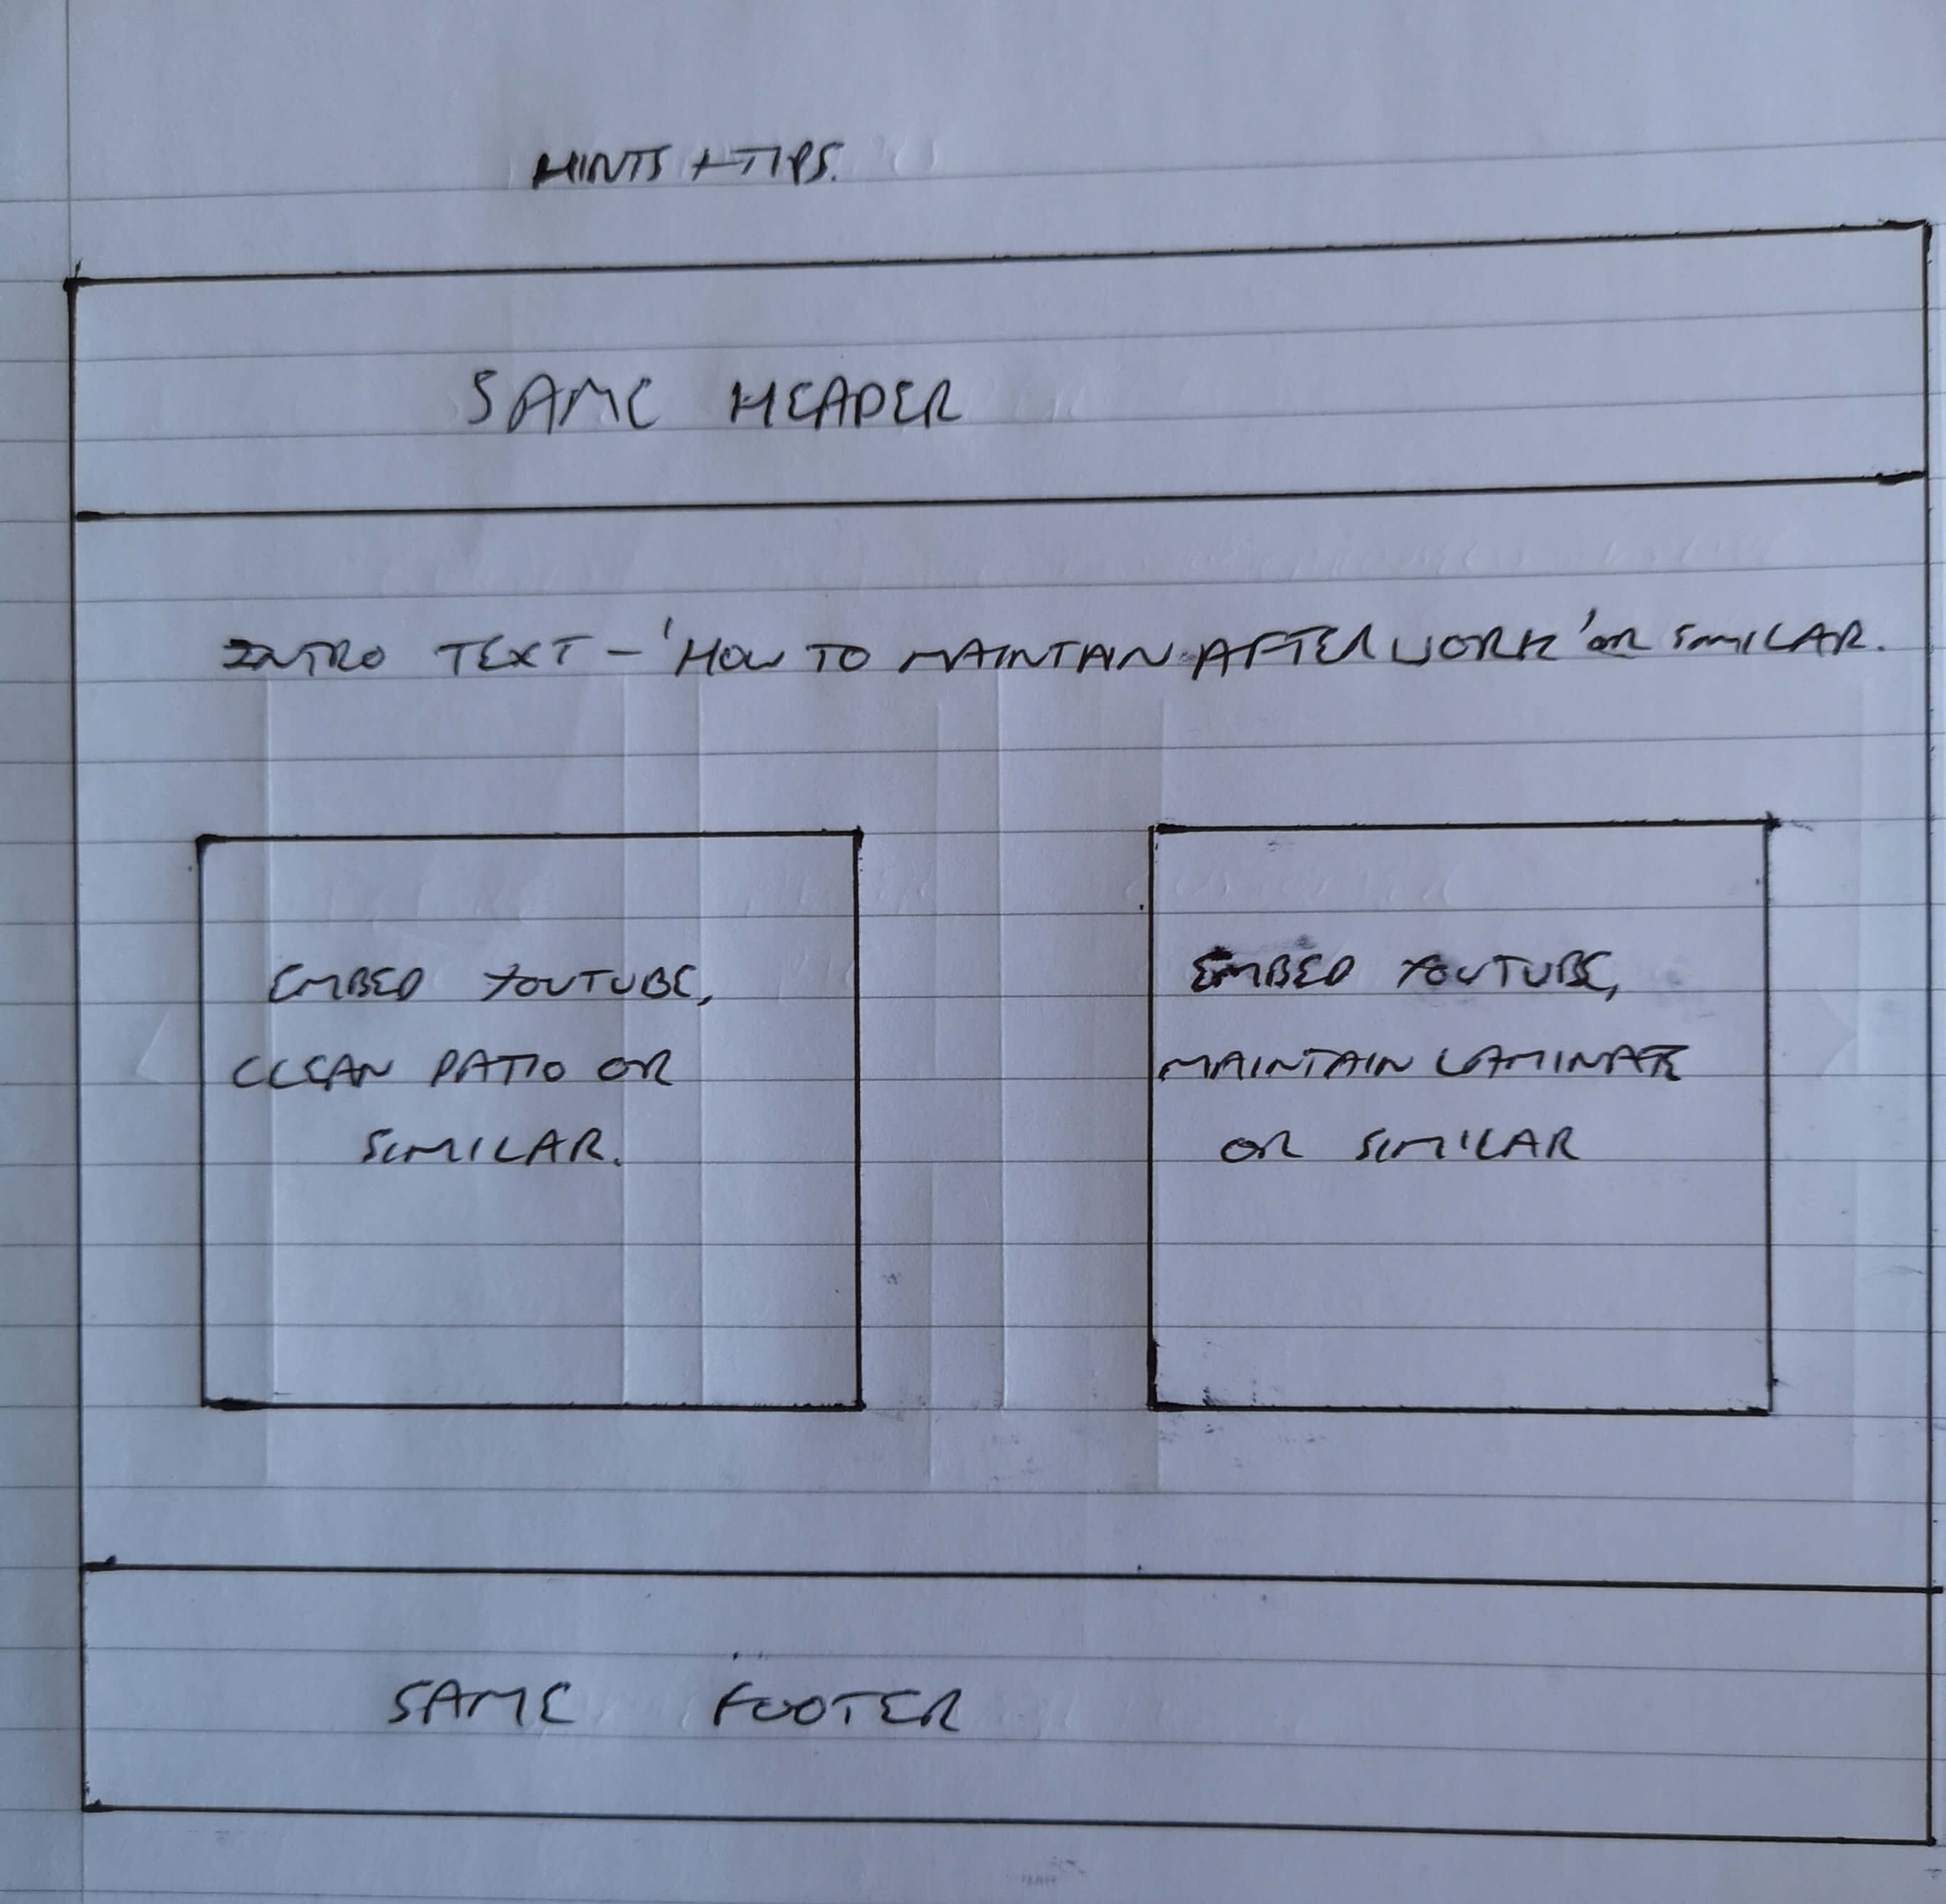 HINTS + TIPS.
SAME HEADER
INTRO TEXT - 'HOW TO MAINTAIN AFTER WORK' OR SIMILAR.
EMBED YOUTUBE,
CLEAN PATIO OR
SIMILAR.
EMBED YOUTUBE,
MAINTAIN LAMINATE
OR SIMILAR
SAME FOOTER